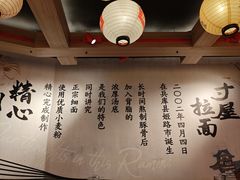 寸屋
拉面
二〇〇二年四月四日
在兵库县姬路市诞生
长时间熬制豚骨后
加入背脂的
浓厚汤底
是我们的特色
同时讲究
正宗细面
使用优质小麦粉
精心完成制作
精心